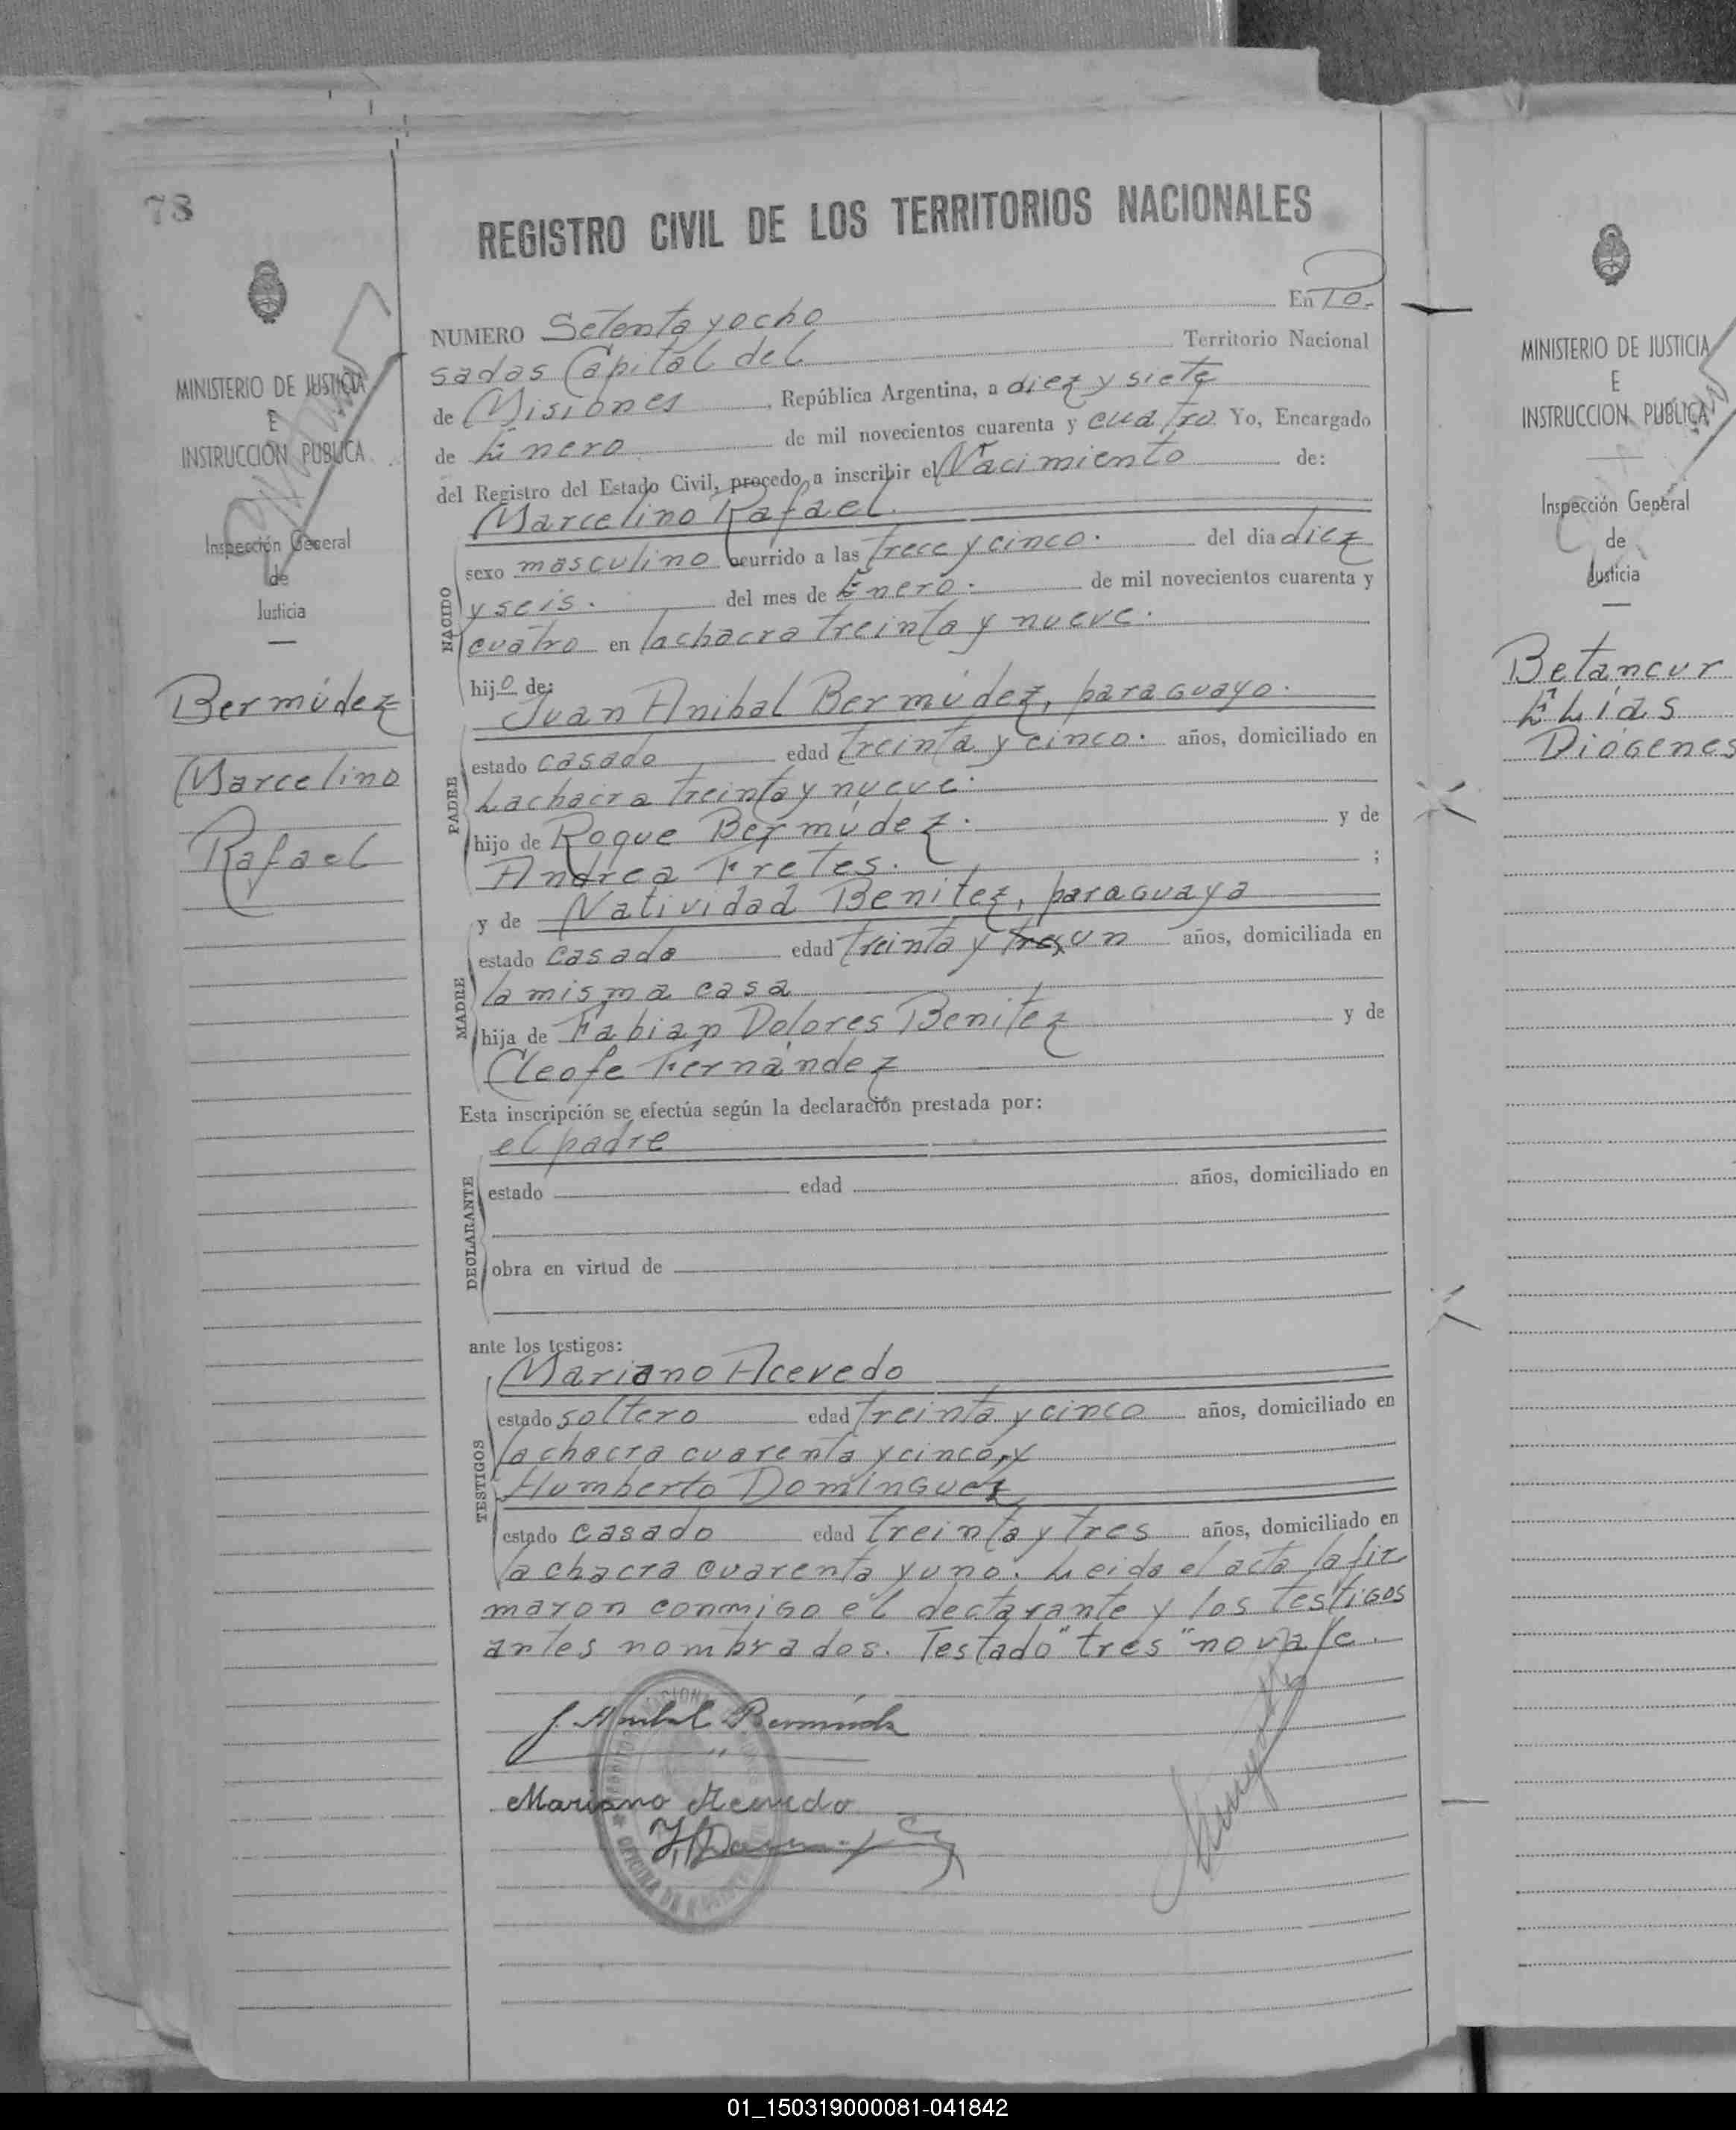 78
MINISTERIO DE JUSTICIA
E
INSTRUCCION PUBLICA
Inspección General
de
Justicia
Bermúdez
Marcelino
Rafael
REGISTRO CIVIL DE LOS TERRITORIOS NACIONALES
NUMERO Setenta y ocho En Po
sadas Capital del Territorio Nacional
de Misiones, República Argentina, a diez y siete
de Enero de mil novecientos cuarenta y cuatro Yo, Encargado
del Registro del Estado Civil, procedo a inscribir el Nacimiento de:
Marcelino Rafael.
NACIDO
sexo masculino ocurrido a las trece y cinco. del dia diez
y seis. del mes de Enero. de mil novecientos cuarenta y
cuatro en la chacra treinta y nueve.
hijo de:
Juan Anibal Bermúdez, paraguayo.
PADRE
estado casado edad treinta y cinco. años, domiciliado en
La chacra treinta y nueve.
hijo de Roque Bermúdez. y de
Andrea Fretes. ;
y de Natividad Benitez, paraguaya
MADRE
estado casada edad treinta y tres un años, domiciliada en
la misma casa
hija de Fabian Dolores Benitez y de
Cleofe Fernández
Esta inscripción se efectúa según la declaración prestada por:
el padre
DECLARANTE
estado edad años, domiciliado en
obra en virtud de
ante los testigos:
Mariano Acevedo
TESTIGOS
estado soltero edad treinta y cinco años, domiciliado en
la chacra cuarenta y cinco, y
Humberto Dominguez
estado casado edad treinta y tres años, domiciliado en
la chacra cuarenta y uno. Leida el acta la fir
maron conmigo el declarante y los testigos
antes nombrados. Testado "tres" no vale.
J. Anibal Bermúdez
Mariano Acevedo
MINISTERIO DE JUSTICIA
E
INSTRUCCION PUBLICA
Inspección General
de
Justicia
Betancur
Elias
Diógenes
01_150319000081-041842